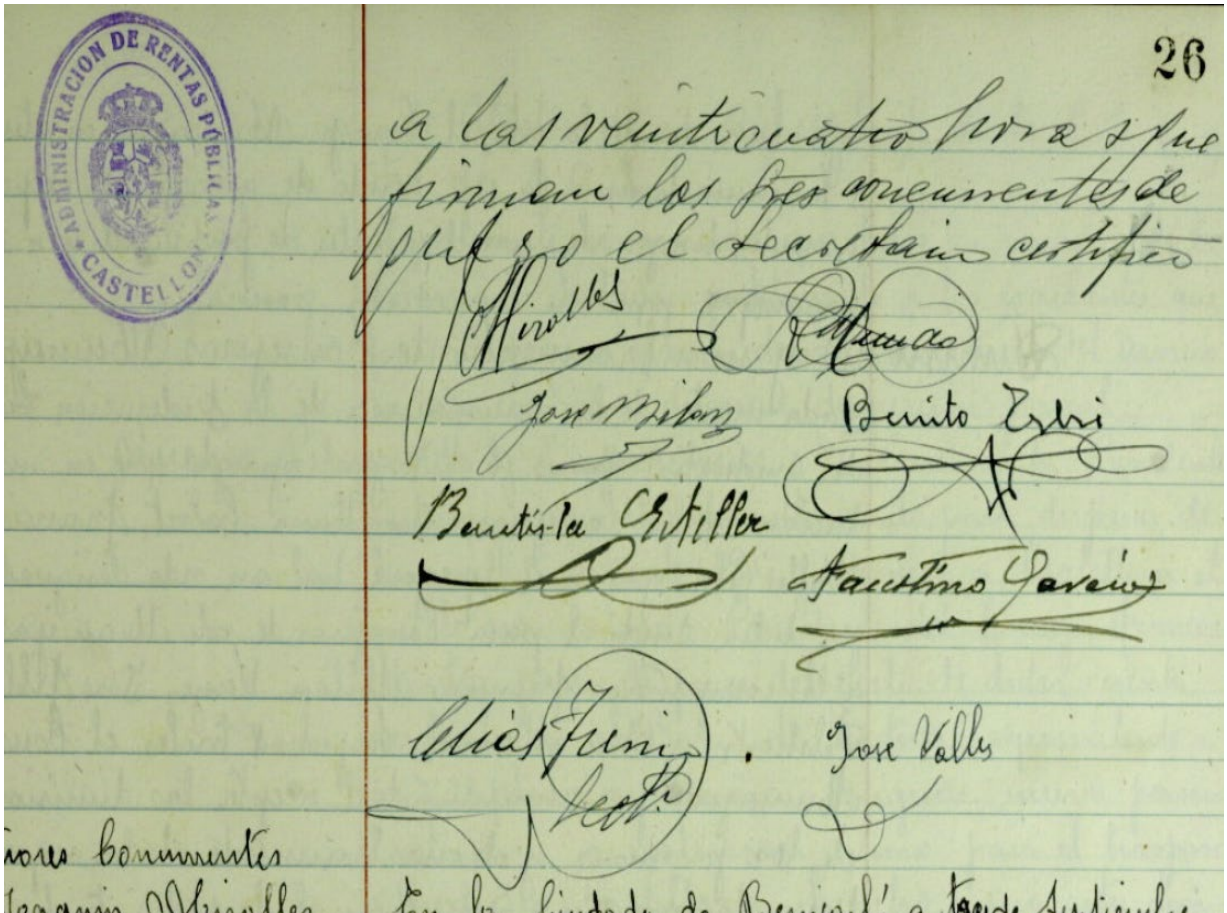 26
ADMINISTRACION DE RENTAS PÚBLICAS
CASTELLON
a las veinticuatro horas que
firman los Sres concurrentes de
que yo el Secretario certifico
Miralles
Jose Milan
Benito Esbri
Bautista Esteller
Faustino Garcia
Jose Valles
Concurrentes
Joaquin Miralles
En la Ciudad de Benicarló a trece Septiembre